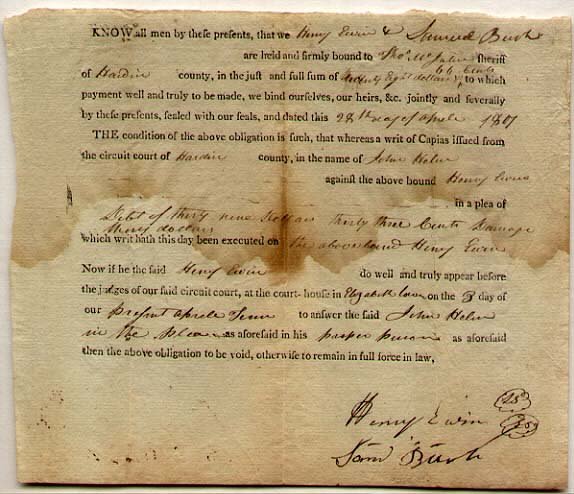 KNOW all men by theſe preſents, that we Henry Ewin & Samuel Bush
are held and firmly bound to Thos. Mc sheriff
of Hardin county, in the juſt and full sum of Eight dollars 66 Cents, to which
payment well and truly to be made, we bind ourſelves, our heirs, &c. jointly and ſeverally
by theſe preſents, ſealed with our ſeals, and dated this 28th day of Aprile 1807
THE condition of the above obligation is ſuch, that whereas a writ of Capias iſſued from
the circuit court of Hardin county, in the name of John Helm
againſt the above bound Henry Ewin
in a plea of
Debt of thirty nine Dollars thirty three Cents Damage
thirty dollars
which writ hath this day been executed on the above bound Henry Ewin
Now if he the ſaid Henry Ewin do well and truly appear before
the judges of our ſaid circuit court, at the court-houſe in Elizabeth town on the 3 day of
our preſent aprile Term to anſwer the ſaid John Helm
in the plea as aforeſaid in his proper person as aforeſaid
then the above obligation to be void, otherwiſe to remain in full force in law,
Henry Ewin
Saml Bush